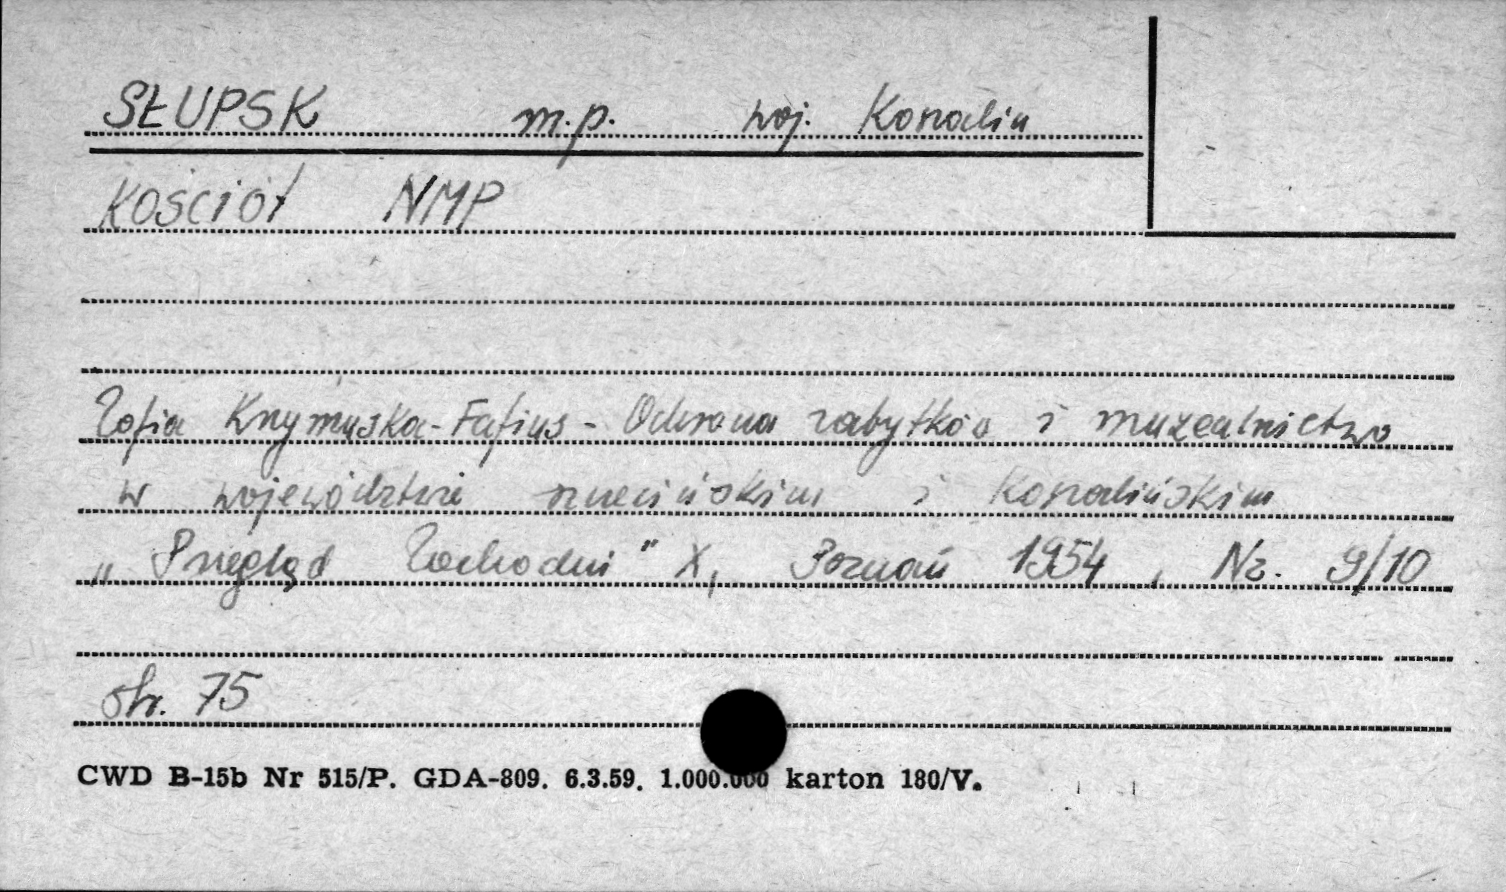 SŁUPSK m.p. woj. Koszalin
KOŚCIÓŁ NMP
Zofia Krzymuska-Fafius - Ochrona zabytków i muzealnictwo
w województwie szczecińskim i Koszalińskim
„Przegląd Zachodni" X, Poznań 1954, Nr. 9/10
str. 75
CWD B-15b Nr 515/P. GDA-809. 6.3.59. 1.000.000 karton 180/V.